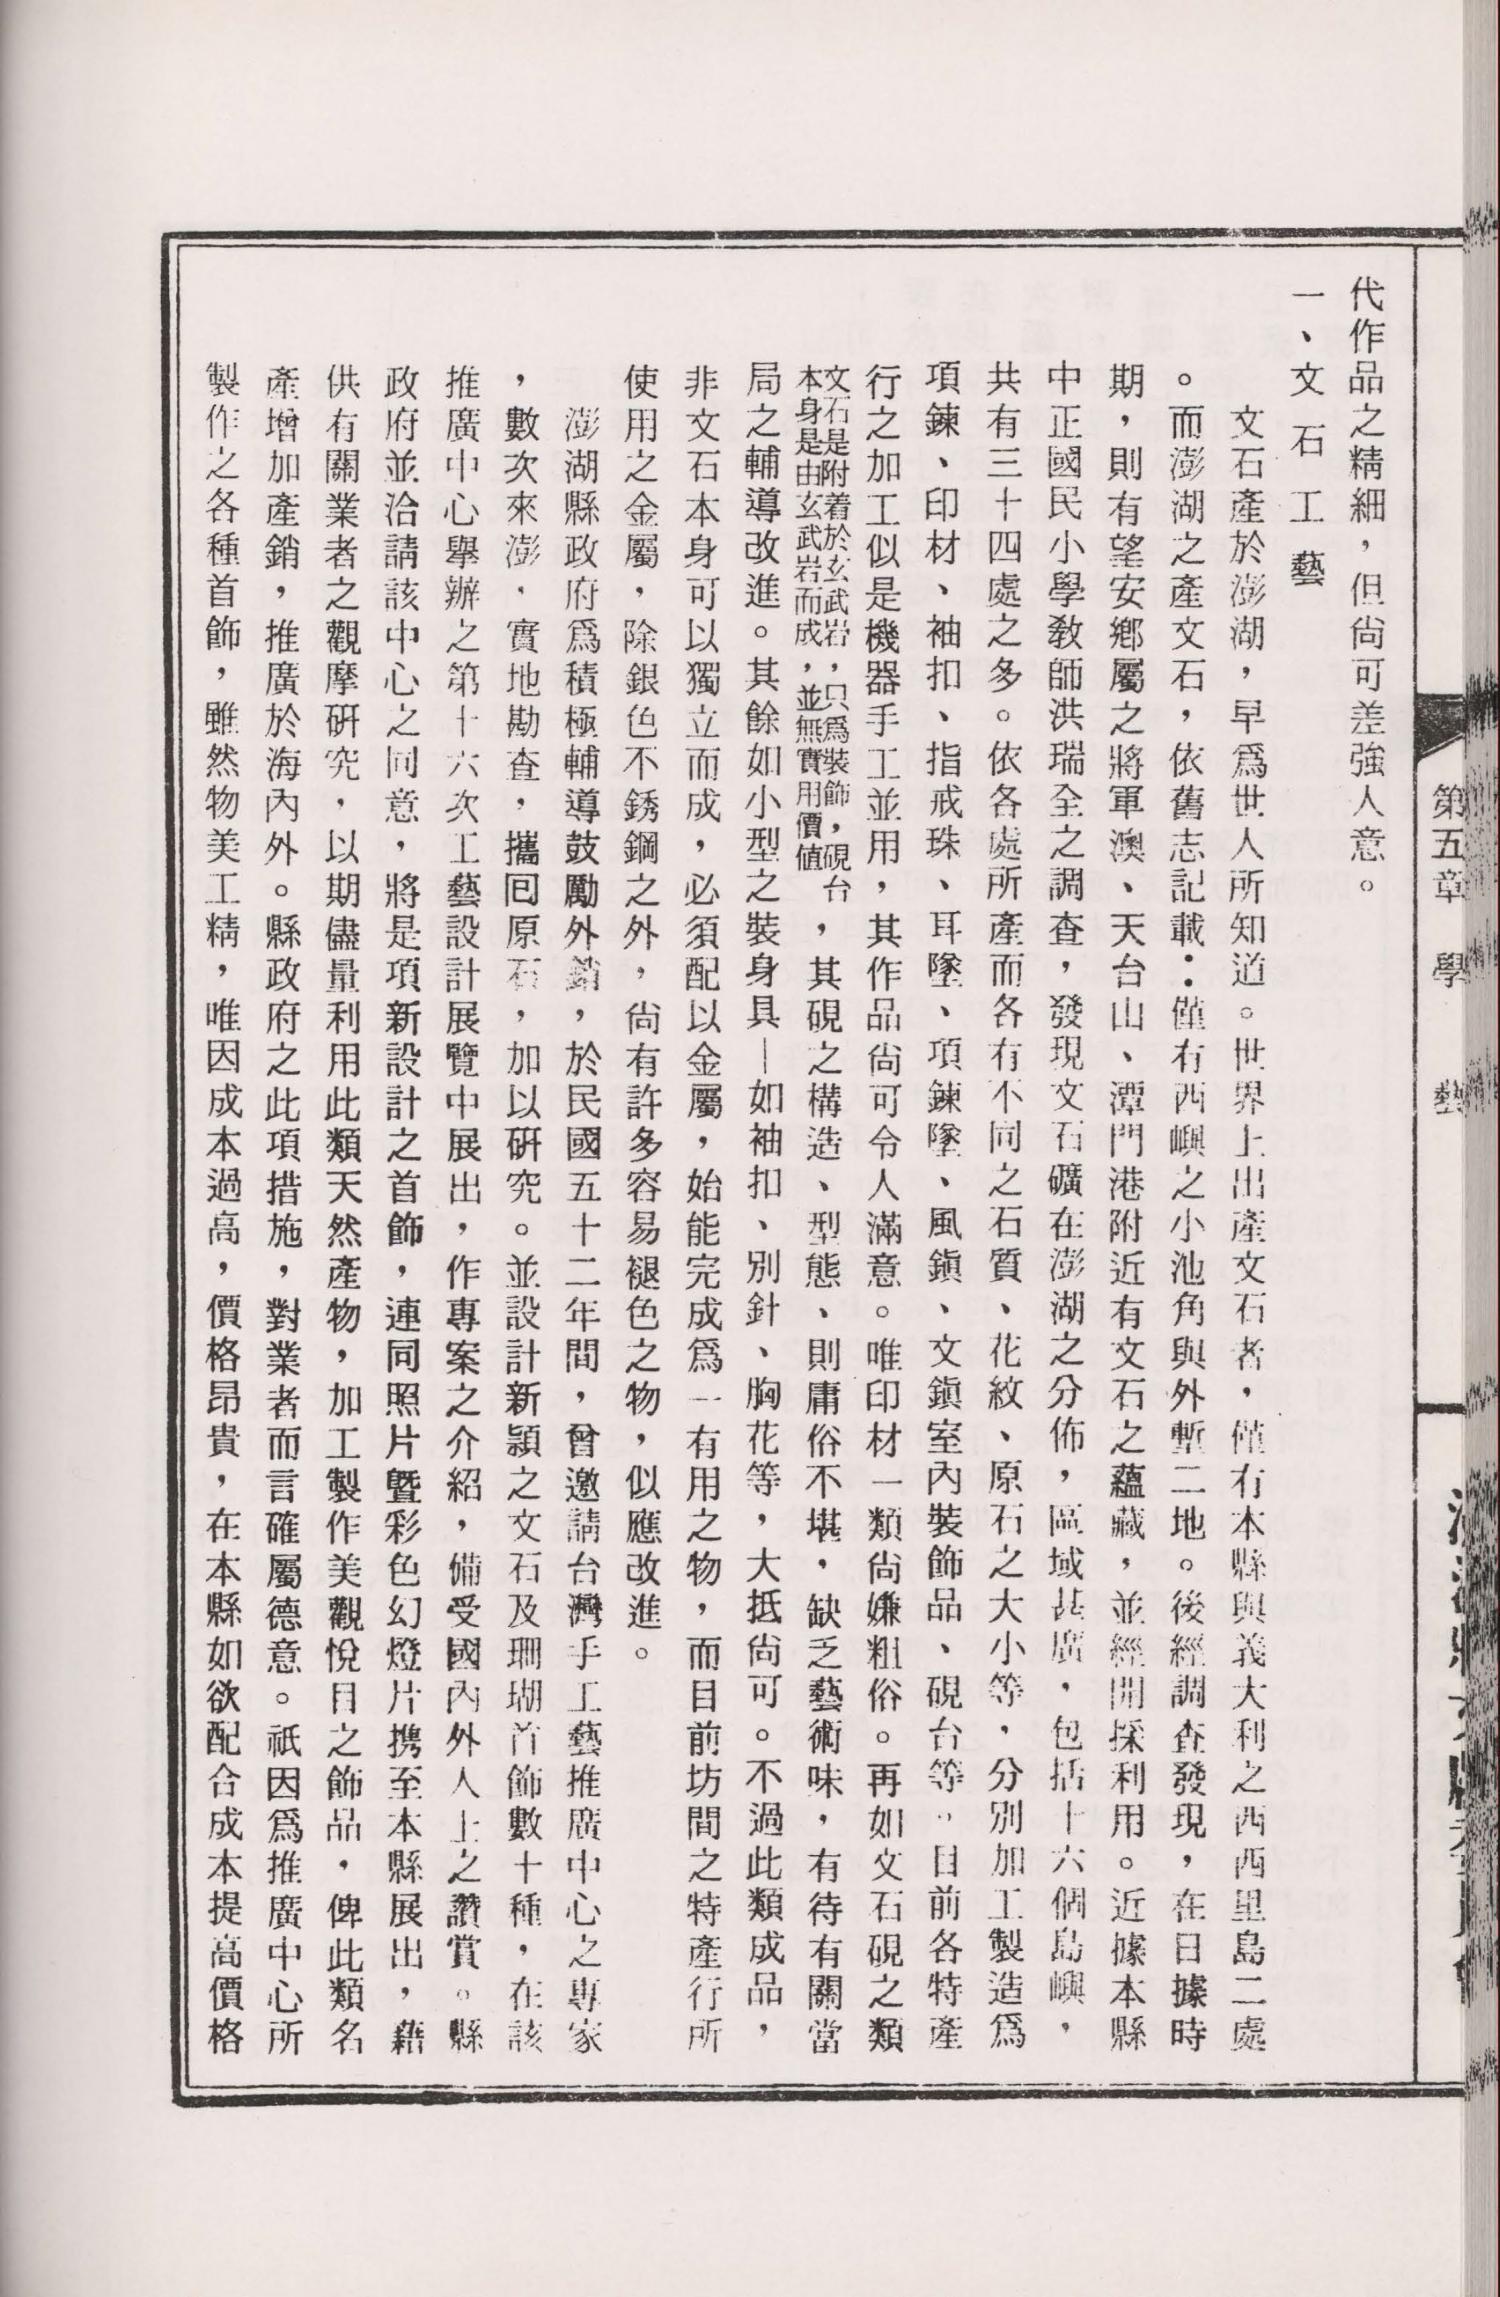 第五章　學　藝
代作品之精細，但尙可差強人意。
一、文石工藝
文石產於澎湖，早爲世人所知道。世界上出產文石者，僅有本縣與義大利之西西里島二處
。而澎湖之產文石，依舊志記載：僅有西嶼之小池角與外塹二地。後經調查發現，在日據時
期，則有望安鄉屬之將軍澳、天台山、潭門港附近有文石之蘊藏，並經開採利用。近據本縣
中正國民小學教師洪瑞全之調查，發現文石礦在澎湖之分佈，區域甚廣，包括十六個島嶼，
共有三十四處之多。依各處所產而各有不同之石質、花紋、原石之大小等，分別加工製造爲
項鍊、印材、袖扣、指戒珠、耳墜、項鍊墜、風鎭、文鎭室內裝飾品、硯台等。目前各特產
行之加工似是機器手工並用，其作品尙可令人滿意。唯印材一類尙嫌粗俗。再如文石硯之類
文石是附着於玄武岩，只爲裝飾，硯台
本身是由玄武岩而成，並無實用價值
，其硯之構造、型態、則庸俗不堪，缺乏藝術味，有待有關當
局之輔導改進。其餘如小型之裝身具—如袖扣、別針、胸花等，大抵尙可。不過此類成品，
非文石本身可以獨立而成，必須配以金屬，始能完成爲一有用之物，而目前坊間之特產行所
使用之金屬，除銀色不銹鋼之外，尙有許多容易褪色之物，似應改進。
澎湖縣政府爲積極輔導鼓勵外銷，於民國五十二年間，曾邀請台灣手工藝推廣中心之專家
，數次來澎，實地勘查，攜回原石，加以研究。並設計新穎之文石及珊瑚首飾數十種，在該
推廣中心舉辦之第十六次工藝設計展覽中展出，作專案之介紹，備受國內外人士之讚賞。縣
政府並洽請該中心之同意，將是項新設計之首飾，連同照片暨彩色幻燈片携至本縣展出，藉
供有關業者之觀摩研究，以期儘量利用此類天然產物，加工製作美觀悅目之飾品，俾此類名
產增加產銷，推廣於海內外。縣政府之此項措施，對業者而言確屬德意。祇因爲推廣中心所
製作之各種首飾，雖然物美工精，唯因成本過高，價格昂貴，在本縣如欲配合成本提高價格